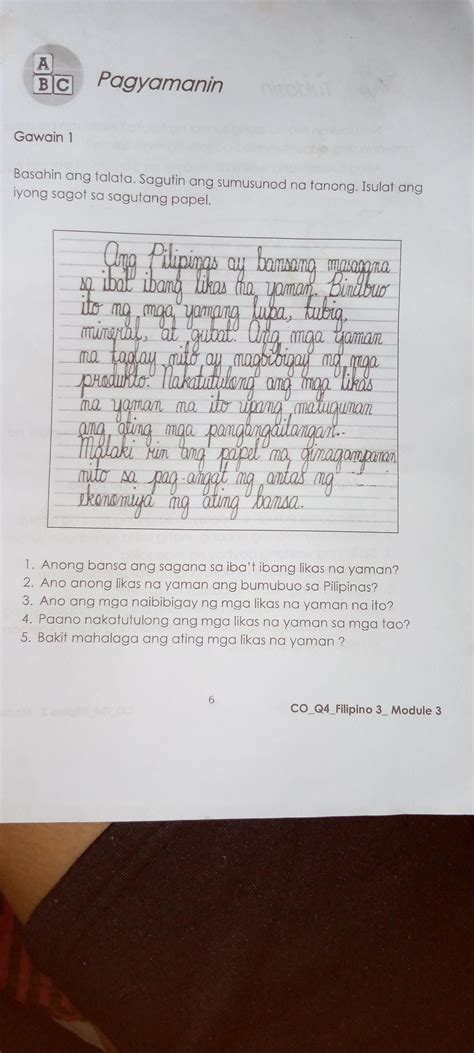 A
B C
Pagyamanin
Gawain 1
Basahin ang talata. Sagutin ang sumusunod na tanong. Isulat ang
iyong sagot sa sagutang papel.
Ang Pilipinas ay bansang masagana
sa ibat ibang likas na yaman. Binubuo
ito ng mga yamang lupa, tubig,
mineral, at gubat. Ang mga yaman
na taglay nito ay nagbibigay ng mga
produkto. Nakatutulong ang mga likas
na yaman na ito upang matugunan
ang ating mga pangangailangan.
Malaki rin ang papel na ginagampanan
nito sa pag-angat ng antas ng
ekonomiya ng ating bansa.
1. Anong bansa ang sagana sa iba't ibang likas na yaman?
2. Ano anong likas na yaman ang bumubuo sa Pilipinas?
3. Ano ang mga naibibigay ng mga likas na yaman na ito?
4. Paano nakatutulong ang mga likas na yaman sa mga tao?
5. Bakit mahalaga ang ating mga likas na yaman ?
6
CO_Q4_Filipino 3_ Module 3